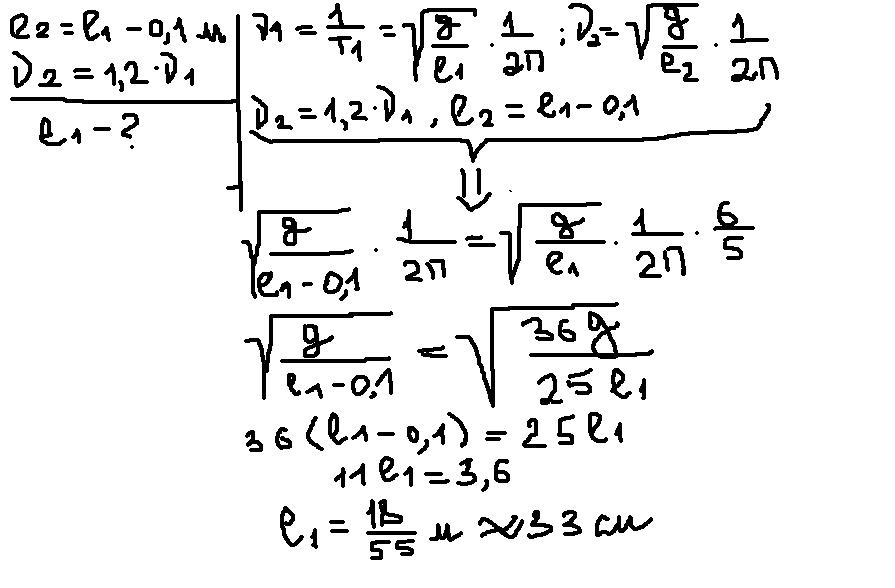 l₂ = l₁ - 0,1 м
ν₂ = 1,2 · ν₁
l₁ - ?
ν₁ = 1/T₁ = √(g/l₁) · 1/2π ; ν₂ = √(g/l₂) · 1/2π
ν₂ = 1,2 · ν₁ , l₂ = l₁ - 0,1
⇓
√(g/(l₁ - 0,1)) · 1/2π = √(g/l₁) · 1/2π · 6/5
√(g/(l₁ - 0,1)) = √(36g/25l₁)
36 (l₁ - 0,1) = 25 l₁
11 l₁ = 3,6
l₁ = 18/55 м ≈ 33 см